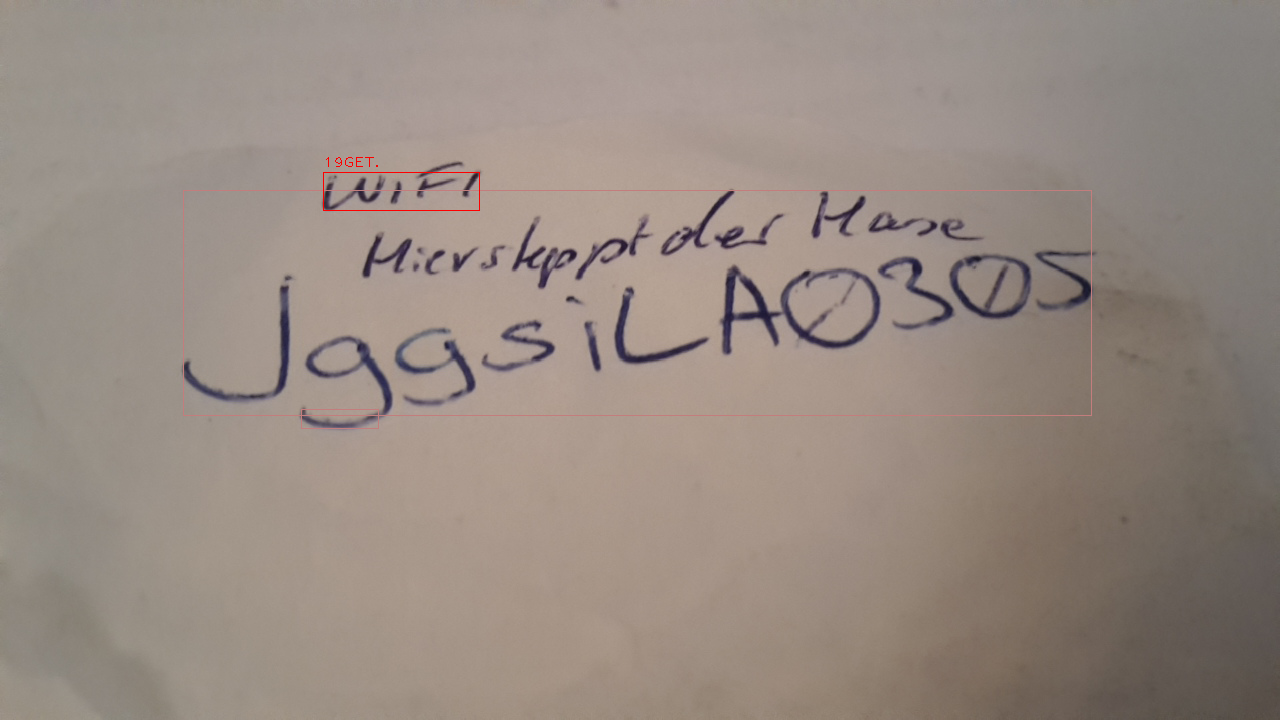 19GET.
WiFi
Hiersteppt der Hase
JggsiLA0305